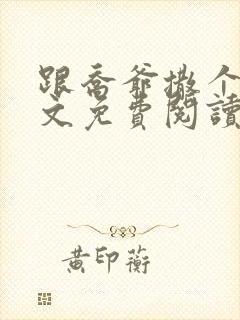 跟喬爺撒个
文免費閱讀
黃印蘅